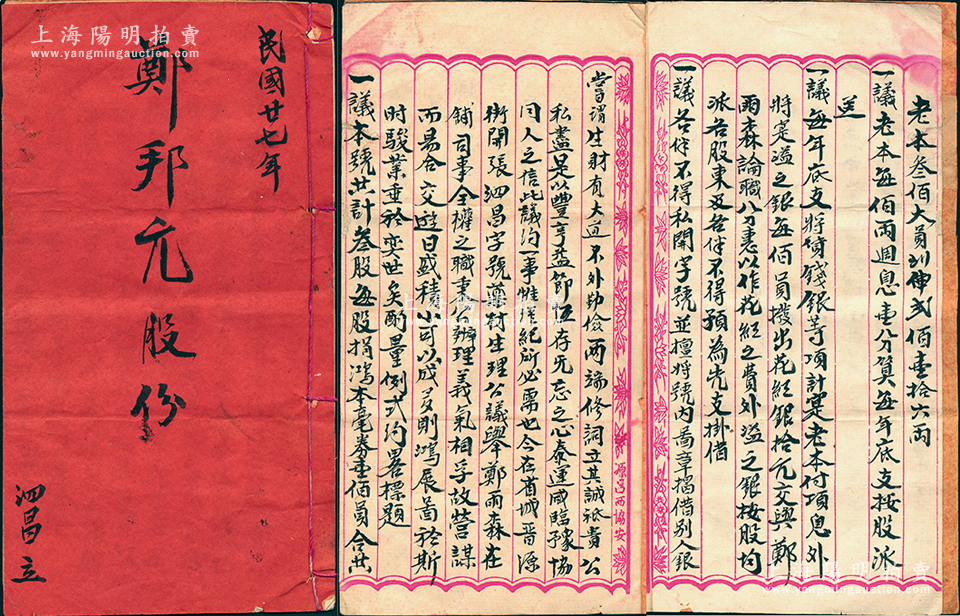 上海陽明拍賣
www.yangmingauction.com
民國廿七年
鄭邦元股份
泗昌立
上海陽明拍賣
www.yangmingauction.com
嘗謂生財有大道不外勤儉兩端修詞立其誠祗責公
私盡是以豐亨益節恒存无忘之心泰運咸臨豫協
同人之信此議約一事惟權紀所必需也今在省城晋源
街開張泗昌字號藥材生理公議舉鄭雨森在
鋪司事全權之職秉公辦理義氣相孚故營謀
而易合交遊日盛積小可以成多則鴻展啚於斯
時駿業垂於奕世矣酌量例式約畧標題
一議本號共計叁股每股捐鴻本毫券壹佰員合共
源昌西協安
上海陽明拍賣
www.yangmingauction.com
老本叁佰大員伸弍佰壹拾六両
一議老本每佰両週息壹分算每年底支按股派
送
一議每年底支將貨錢銀等項計寔老本付項息外
將寔溢之銀每佰員撥出花紅銀拾元交與鄭
雨森論職分惠以作花紅之費外溢之銀按股均
派各股東及各伴不得預為先支掛借
一議各伴不得私開字號並擅将號内啚章擔借别人銀